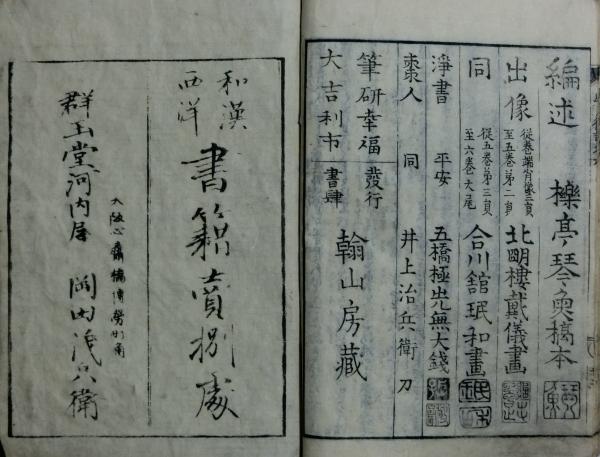 編述 櫟亭琴魚稿本
出像 從卷端肖像三頁至五卷第二頁 北明樓戴儀畫
同 從五卷第三頁至六卷大尾 合川舘珉和畫
淨書 平安 五橋極光無大錢
棗人 同 井上治兵衛刀
筆研幸福 發行
大吉利市 書肆
翰山房藏
和漢
西洋
書籍賣捌處
大阪心齋橋博勞町角
群玉堂河内屋 岡田茂兵衛